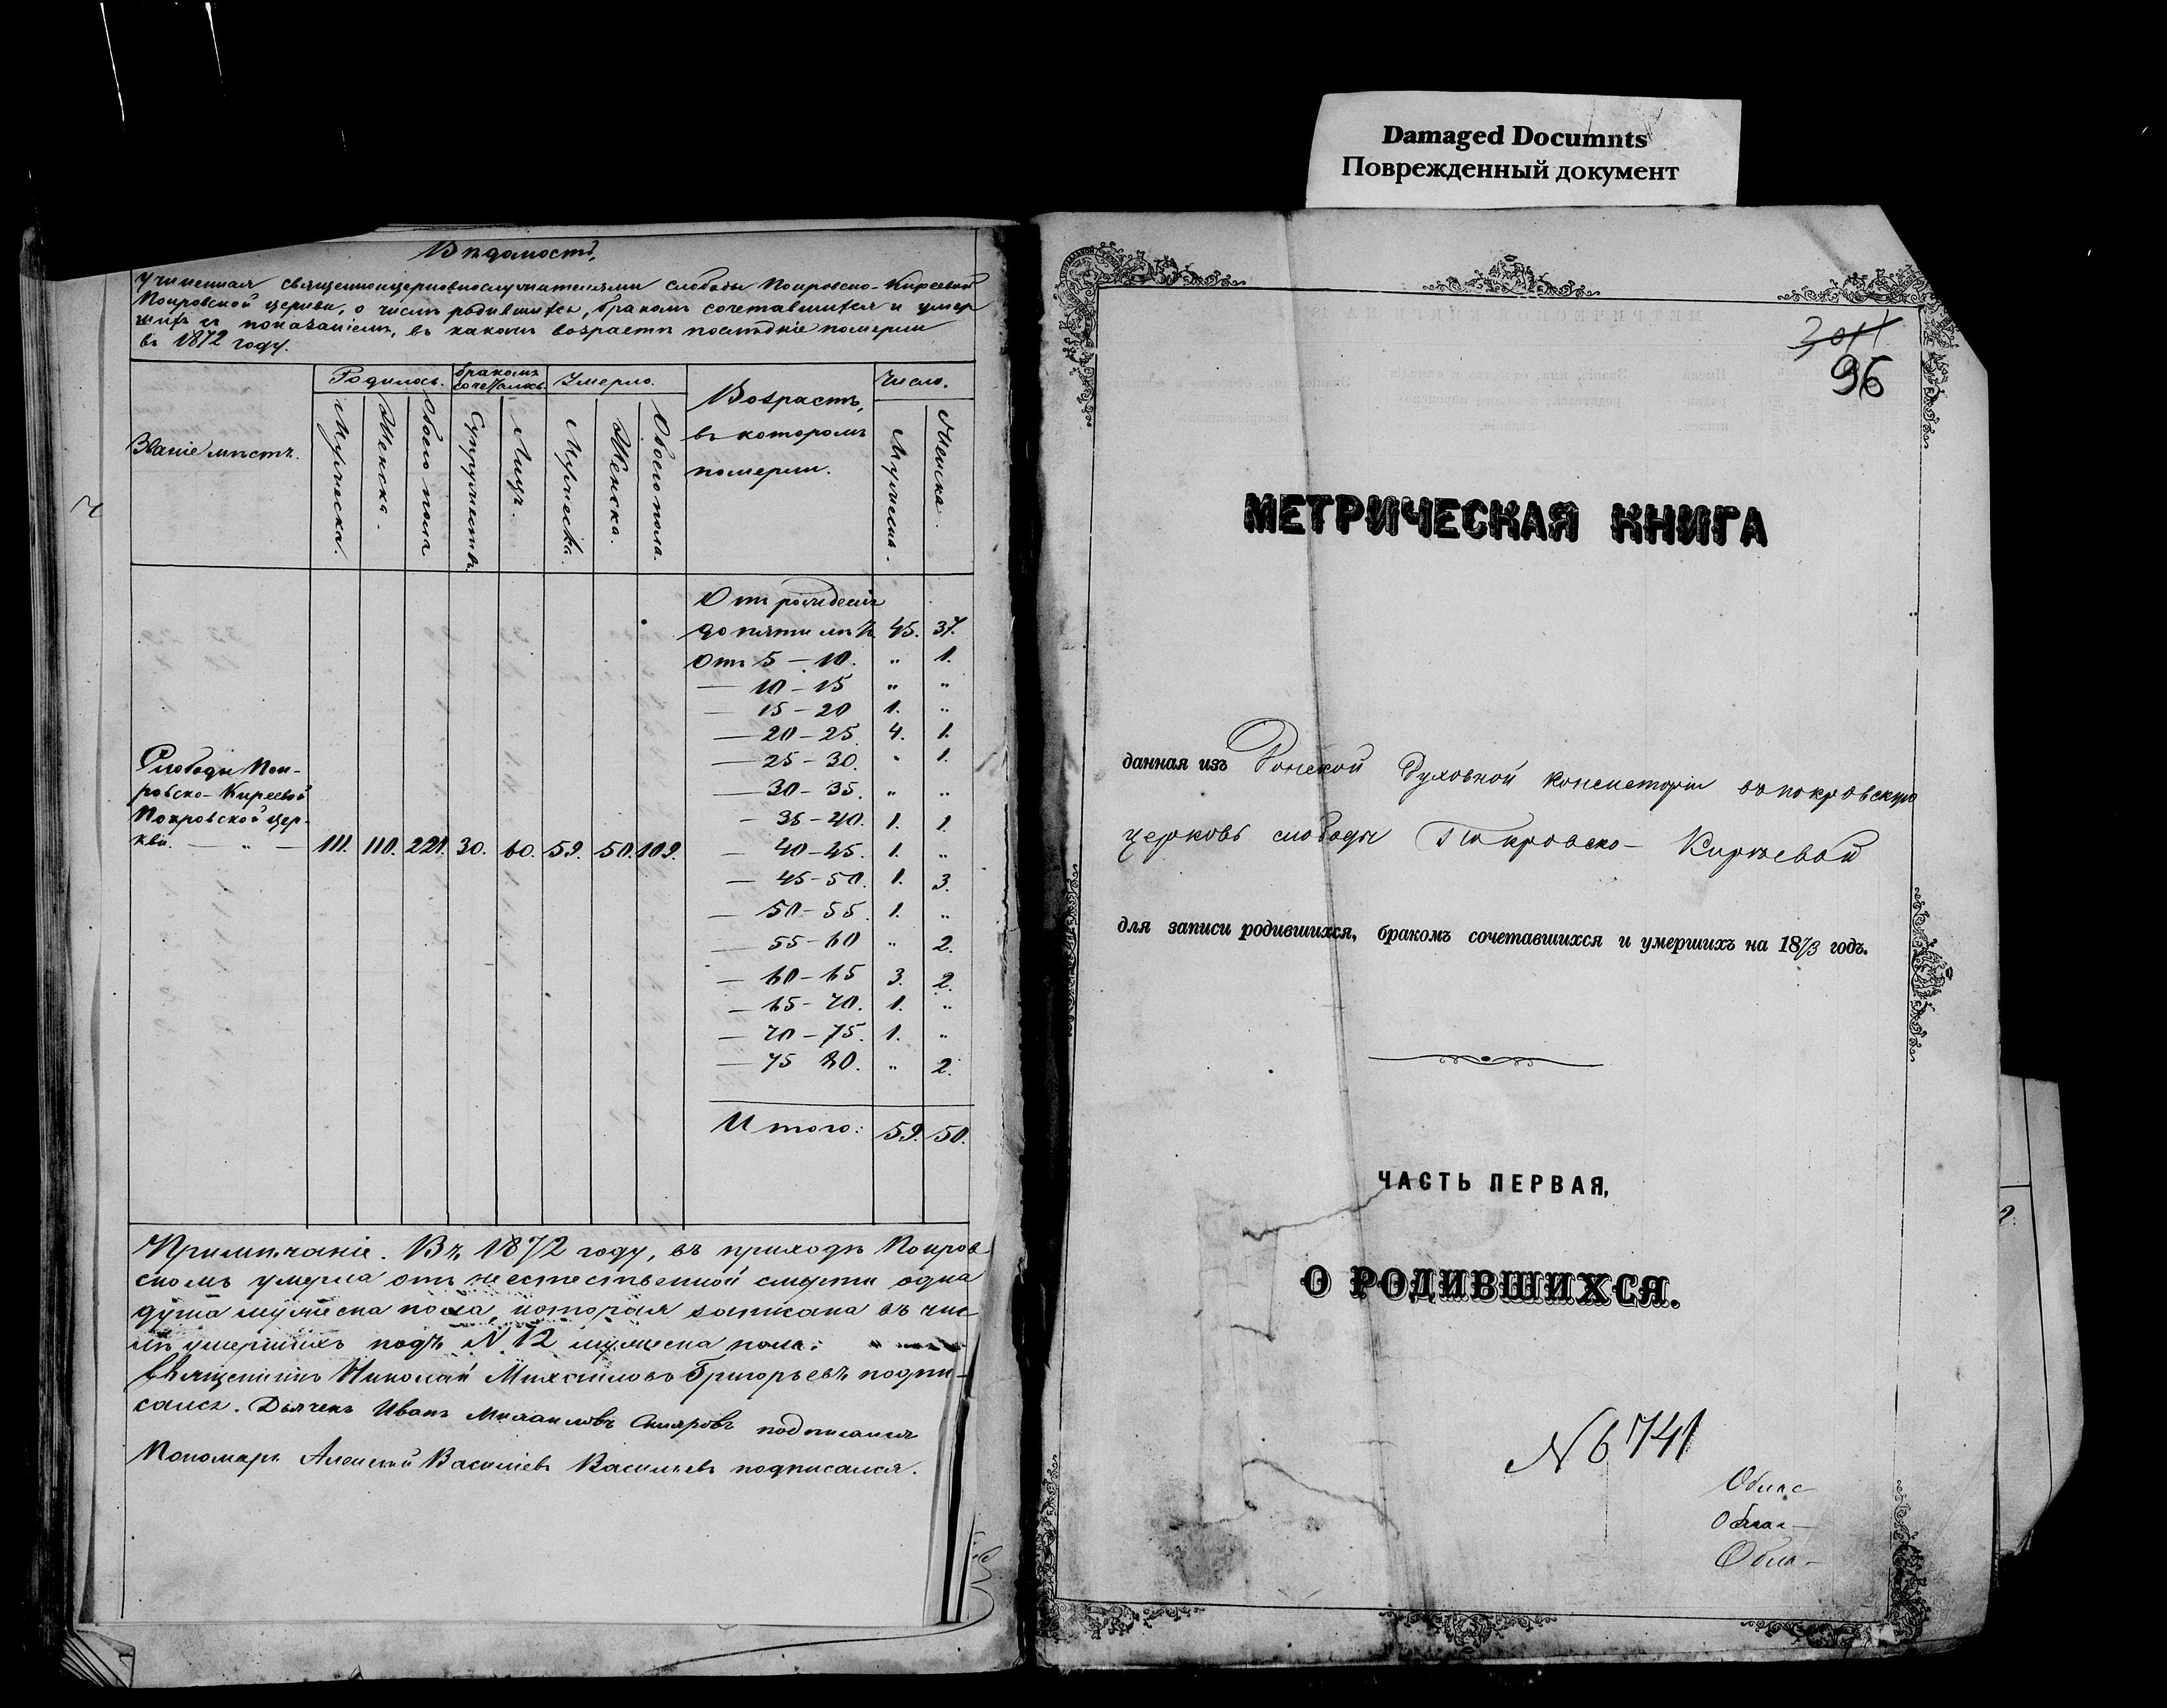 Damaged Documnts
Поврежденный документ
Вѣдомость,
учиненная священноцерковнослужителями слободы Покровско-Киреевой
Покровской церкви, о числѣ родившихся, бракомъ сочетавшихся и умер
шихъ съ показаніемъ, въ какомъ возрастѣ послѣдніе померли
въ 1872 году.
Званіе мѣстъ.
Родилось.
бракомъ сочетались.
Умерло.
Возрастъ,
въ которомъ
померли.
Число.
Мужеска.
Женска.
Обоего пола
Супружествъ
Лицъ.
Мужеска.
Женска.
Обоего пола.
Мужеска.
Женска.
Отъ рожденія
до пяти лѣтъ 45. 37.
Отъ 5 — 10. " 1.
— 10 — 15 " "
— 15 — 20 1. "
— 20 — 25 4. 1.
— 25 — 30. " 1.
— 30 — 35. " "
— 35 — 40. 1. 1.
— 40 — 45. 1. "
— 45 — 50. 1. 3.
— 50 — 55. 1. "
— 55 — 60 " 2.
— 60 — 65 3. 2.
— 65 — 70. 1. "
— 70 — 75. 1. "
— 75 80. " 2.
Слободы Пок-
ровско-Киреевой
Покровской цер-
кви. — " — 111. 110. 221. 30. 60. 59. 50. 109.
Итого: 59. 50.
Примѣчаніе. Въ 1872 году, въ приходѣ Покров
скомъ умерла отъ неестественной смерти одна
душа мужеска пола, которая записана въ чис
лѣ умершихъ подъ N. 12 мужеска пола.
Священникъ Николай Михаиловъ Григорьевъ подпи-
сался. Дьячекъ Иванъ Михаиловъ подписался
Пономарь Алексѣй Васильевъ Васильевъ подписался.
96
МЕТРИЧЕСКАЯ КНИГА
данная изъ Донской Духовной Консисторіи въ покровскую
церковь слободы Покровско- Кирѣевой
для записи родившихся, бракомъ сочетавшихся и умершихъ на 1873 годъ.
ЧАСТЬ ПЕРВАЯ,
О РОДИВШИХСЯ.
N 6741